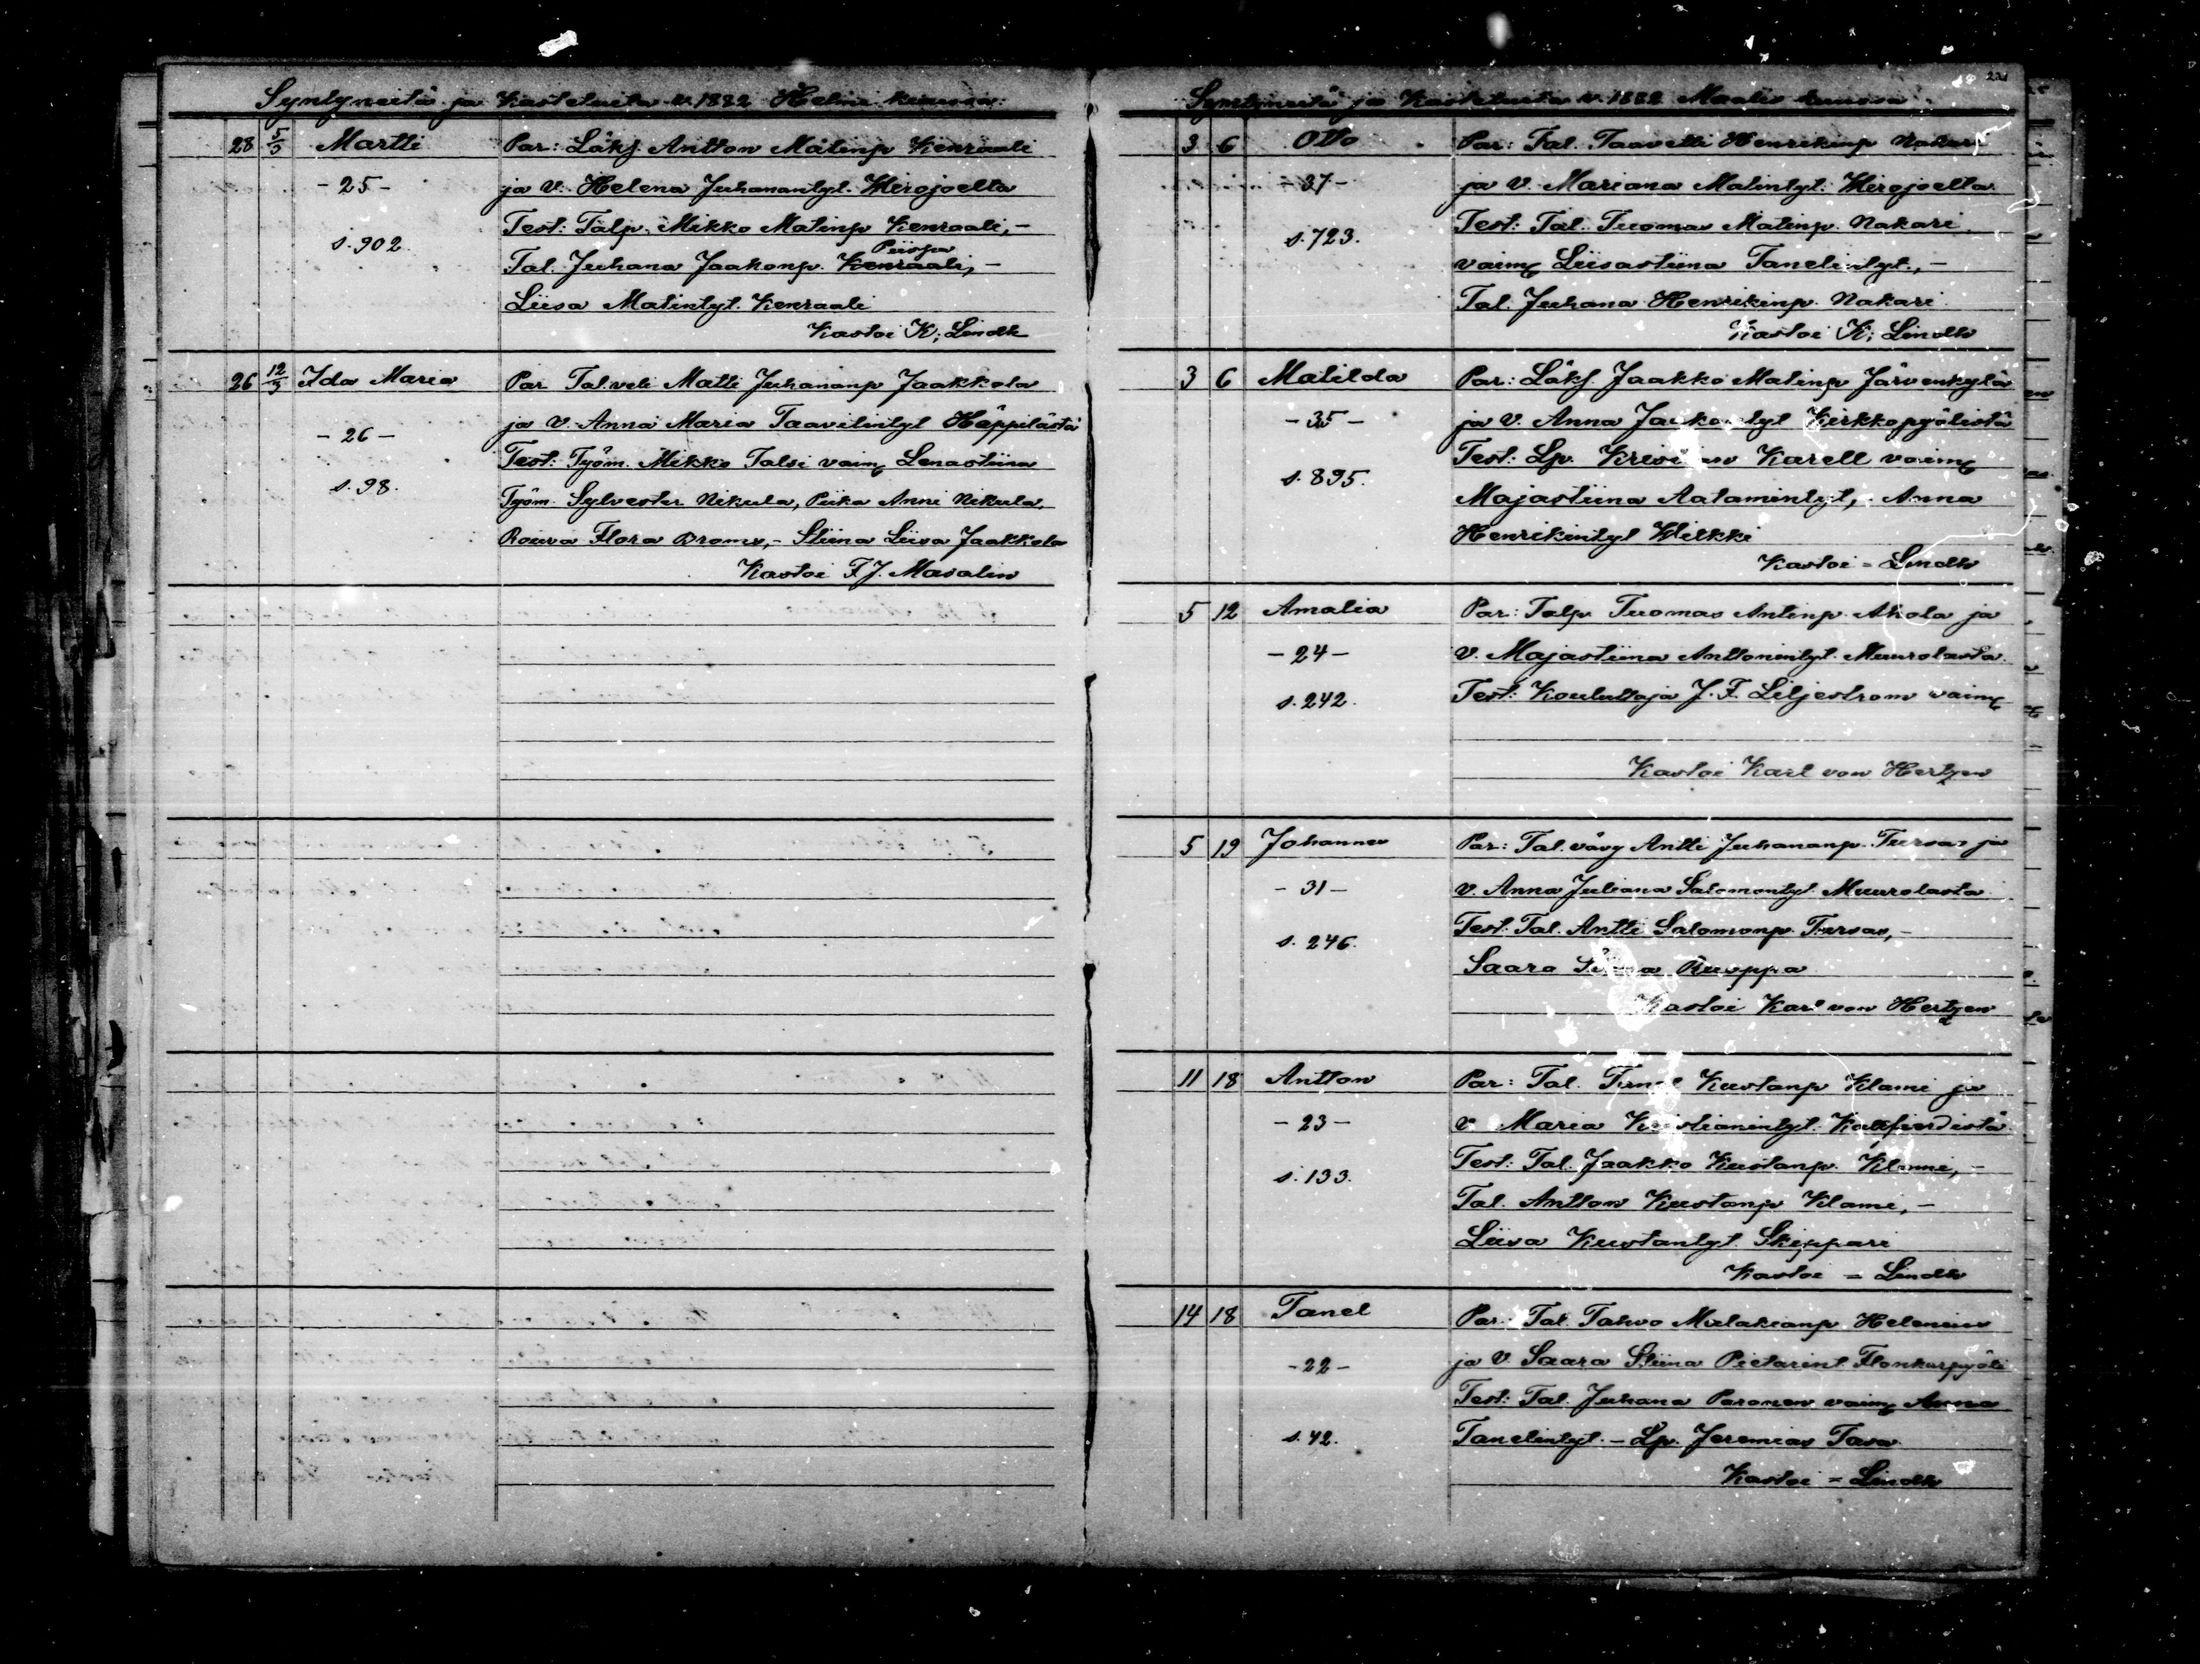 Syntyneitä ja Kastetuita v. 1882 Helmi kuussa.
28 5/3 Martti Par: Läksj Antton Matinp Kenraali
- 25 - ja V. Helena Juhanantyt. Wirojoelta
Test: Talp. Mikko Matinp Kenraali, -
s. 902. Tal. Juhana Jaakonp. Kenraali, -
Piispa
Liisa Matintyt. Kenraali
Kastoi K; Lindh
26 12/3 Ida Maria Par Tal.veli Matti Juhananp Jaakkola
ja V. Anna Maria Taavitintyt Häppilästä
- 26 - Test: Työm. Mikko Talsi vaim Lenastiina
s. 98. Työm. Sylvester Nikula, Piika Anni Nikula,
Rouva Flora Broms, - Stiina Liisa Jaakkola
Kastoi F J. Masalin
231
Syntyneitä ja Kastetuita v. 1882 Maalis kuussa
3 6 Otto Par: Tal. Taavetti Henrikinp Nakari
- 37 - ja V. Mariana Matintyt. Wirojoelta
Test: Tal. Tuomas Matinp. Nakari
s. 723. vaim Liisastiina Tanelintyt., -
Tal. Juhana Henrikinp. Nakari
Kastoi K; Lindh
3 6 Matilda Par: Läksj. Jaakko Matinp Järvenkylä
- 35 - ja V. Anna Jaakontyt Kirkkopyölistä
Test: Lp. Karell vaim
s. 895. Majastiina Aatamintyt, Anna
Henrikintyt Wilkki
Kastoi = Lindh
5 12 Amalia Par: Talp Tuomas Antinp. Ahola ja
- 24 - V. Majastiina Anttonintyt. Muurolasta.
s. 242. Test: Kouluttaja J. F. Liljestrom vaim
Kastoi Karl von Hertzen
5 19 Johannes Par: Tal. vävy Antti Juhananp. Tursas ja
- 31 - V. Anna Juliana Salomontyt Muurolasta
Test. Tal. Antti Salomonp. Tursas, -
s. 246. Saara Ruoppa
Kastoi Karl von Hertzen
11 18 Antton Par: Tal. Kustanp Klami ja
- 23 - V. Maria Kristianintyt.
Test: Tal. Jaakko Kustanp. Klami, -
s. 133. Tal. Antton Kustanp Klami, -
Liisa Kustantyt. Skippari
Kastoi = Lindh
14 18 Tanel Par. Tal. Tahvo Malakianp Helenius
- 22 - ja V. Saara Stiina Pietarint.
Test: Tal. Juhana Paronen vaim Anna
s. 42. Tanelintyt. - Lp. Jeremias Tasa
Kastoi = Lindh